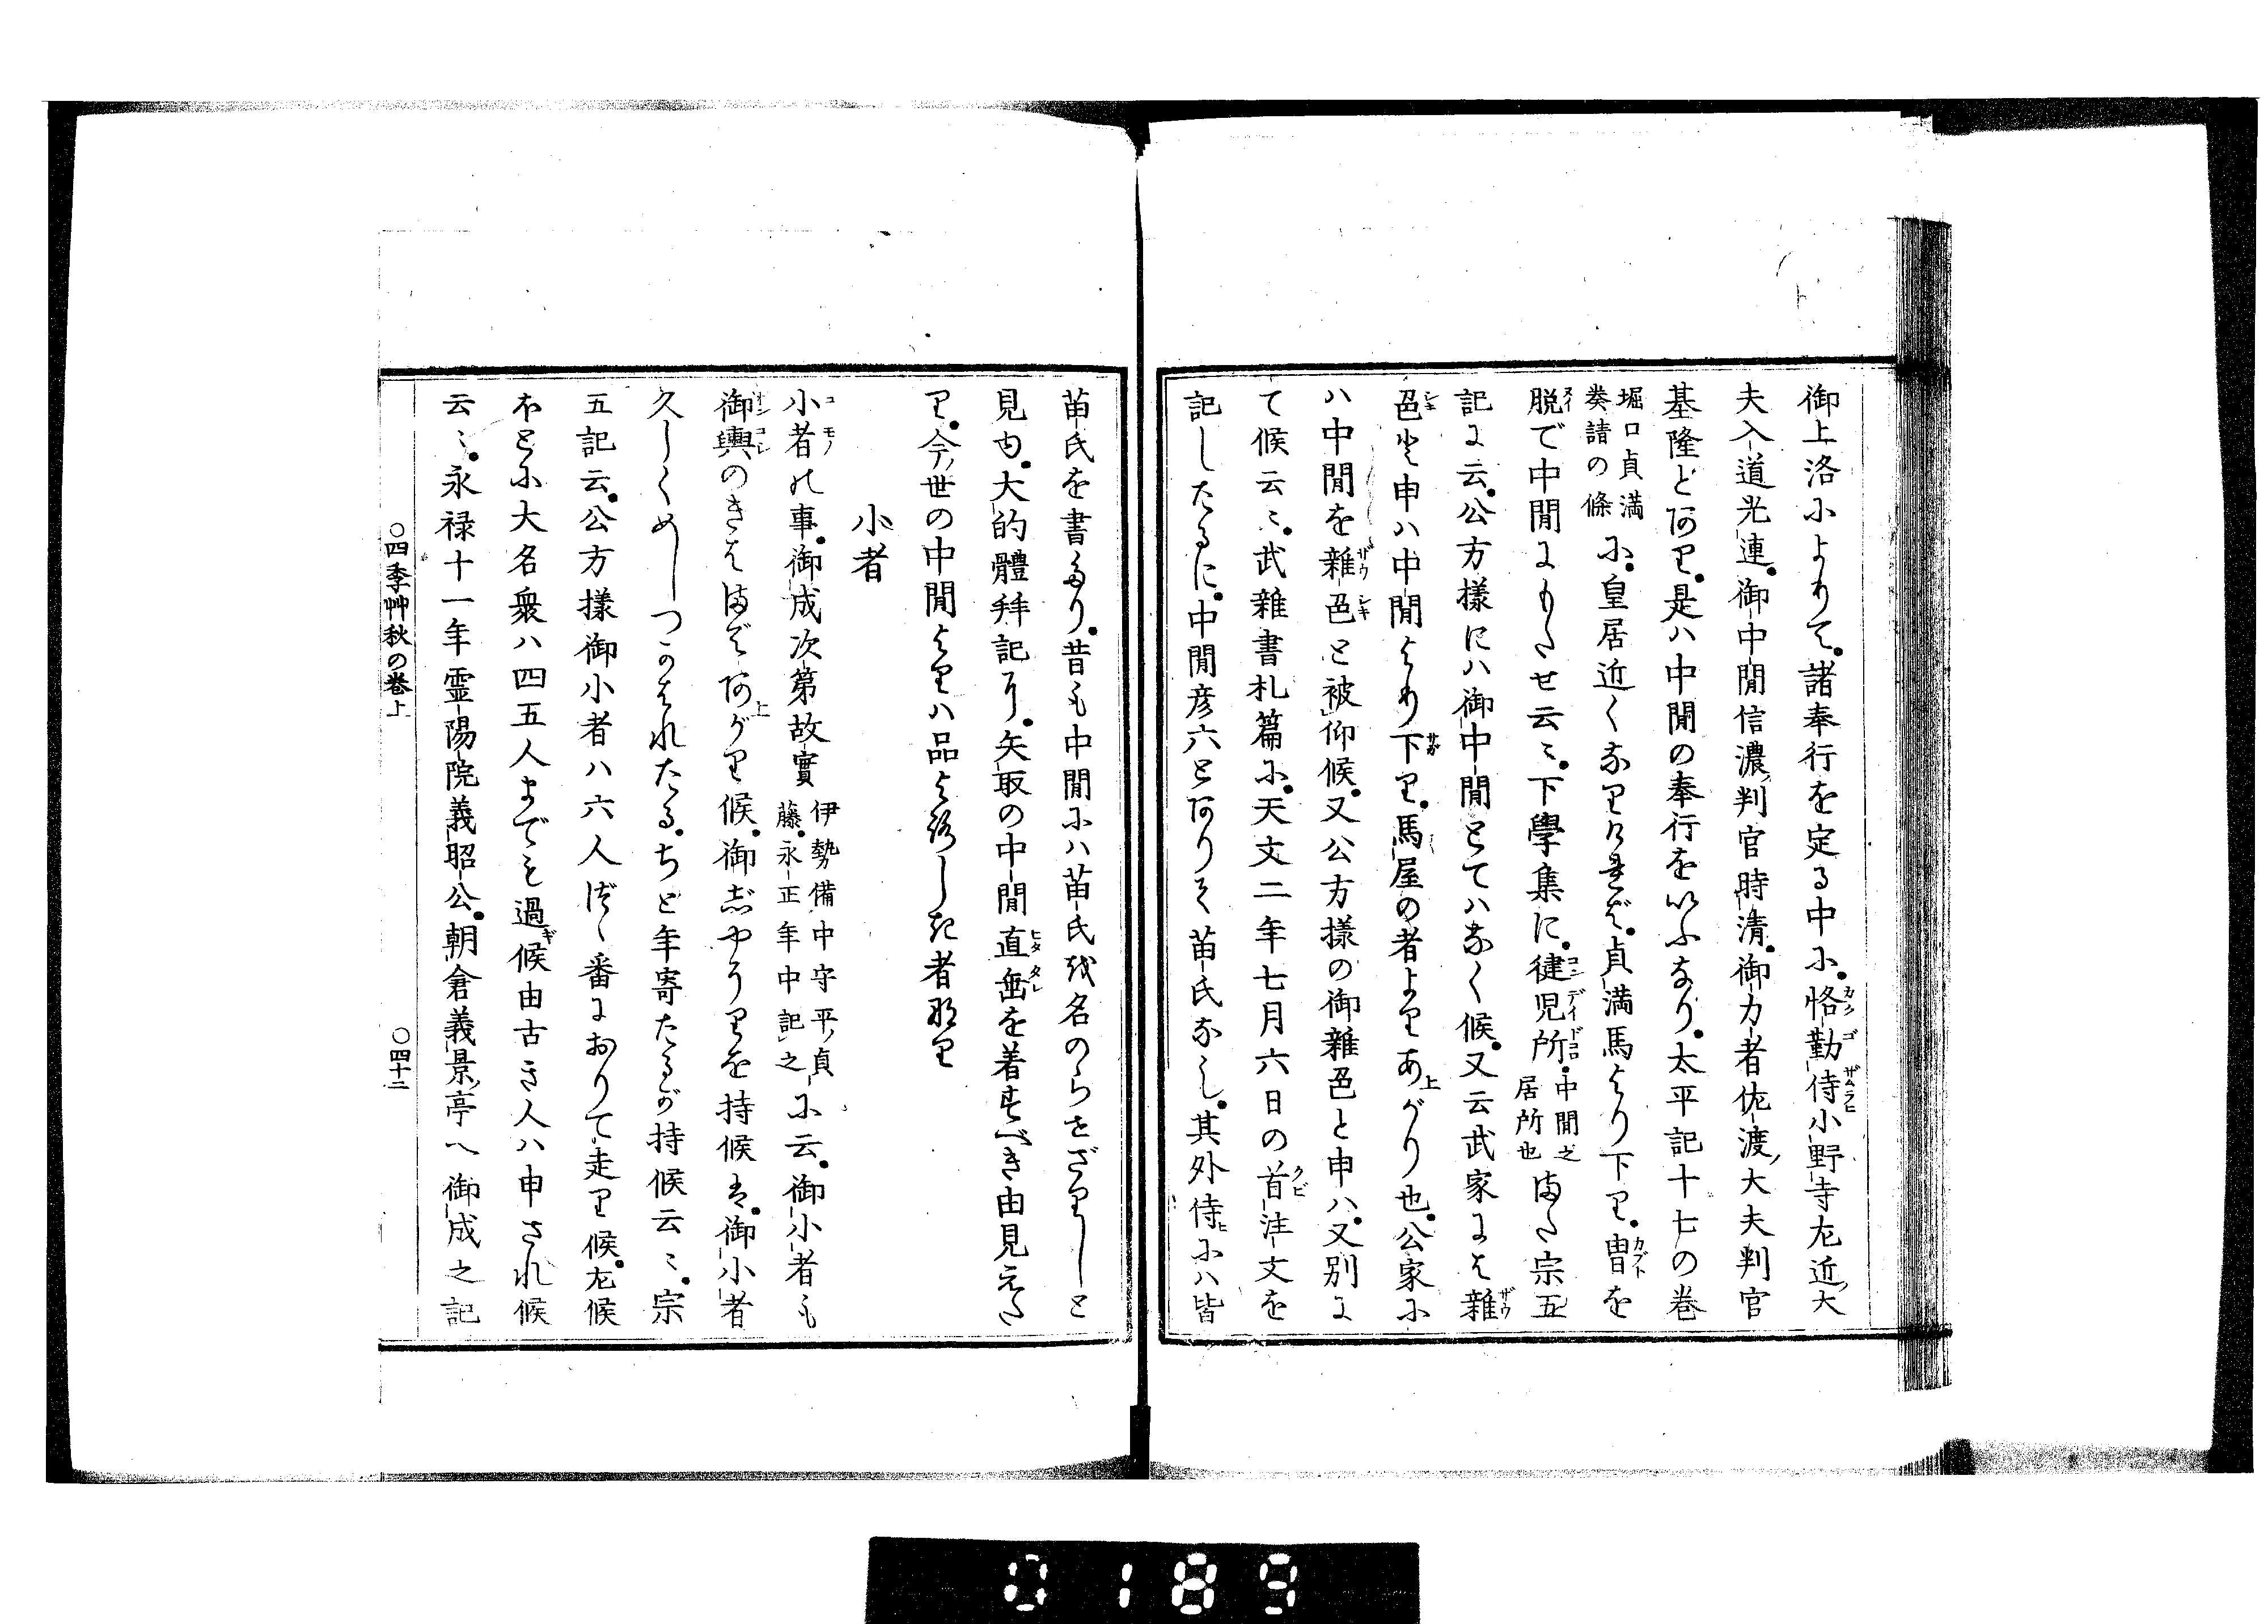 御上洛によりて。諸奉行を定る中に。恪勤侍小野寺左近大
夫入道光連。御中間信濃判官時清。御力者佐渡大夫判官
基隆とあり。是ハ中間の奉行をいふなり。太平記十七の巻
堀口貞満
奏請の條
に。皇居近くなりければ。貞満馬より下り。冑を
脱で中間にもたせ云〻。下學集に。健児所。
中間之
居所也
また宗五
記に云。公方様にハ御中間とてハなく候。又云武家にも雜
色と申ハ中間より下り。馬屋の者よりあがり也。公家に
ハ中間を雜色と被仰候。又公方様の御雜色と申ハ。又別に
て候云〻。武雜書札篇に。天文二年七月六日の首注文を
記したるに。中間彦六とありて苗氏なし。其外侍にハ皆
苗氏を書たり。昔も中間にハ苗氏を名のらせざりしと
見ゆ。大的體拜記に。矢取の中間直垂を着すべき由見えた
り。今世の中間よりハ品よろしき者なり
小者
小者の事。御成次第故實
伊勢備中守平貞
藤。永正年中記之
に云。御小者も
御輿のきはまであがり候。御じやうりを持候は。御小者
久しくめしつかはれたる。ちと年寄たるが持候云〻。宗
五記云。公方様御小者ハ六人づゝ番におりて走り候。左候
ほどに大名衆ハ四五人までも過候由古き人ハ申され候
云〻。永禄十一年霊陽院義昭公。朝倉義景亭へ御成之記
〇四季艸秋の巻上
〇四十二
0189